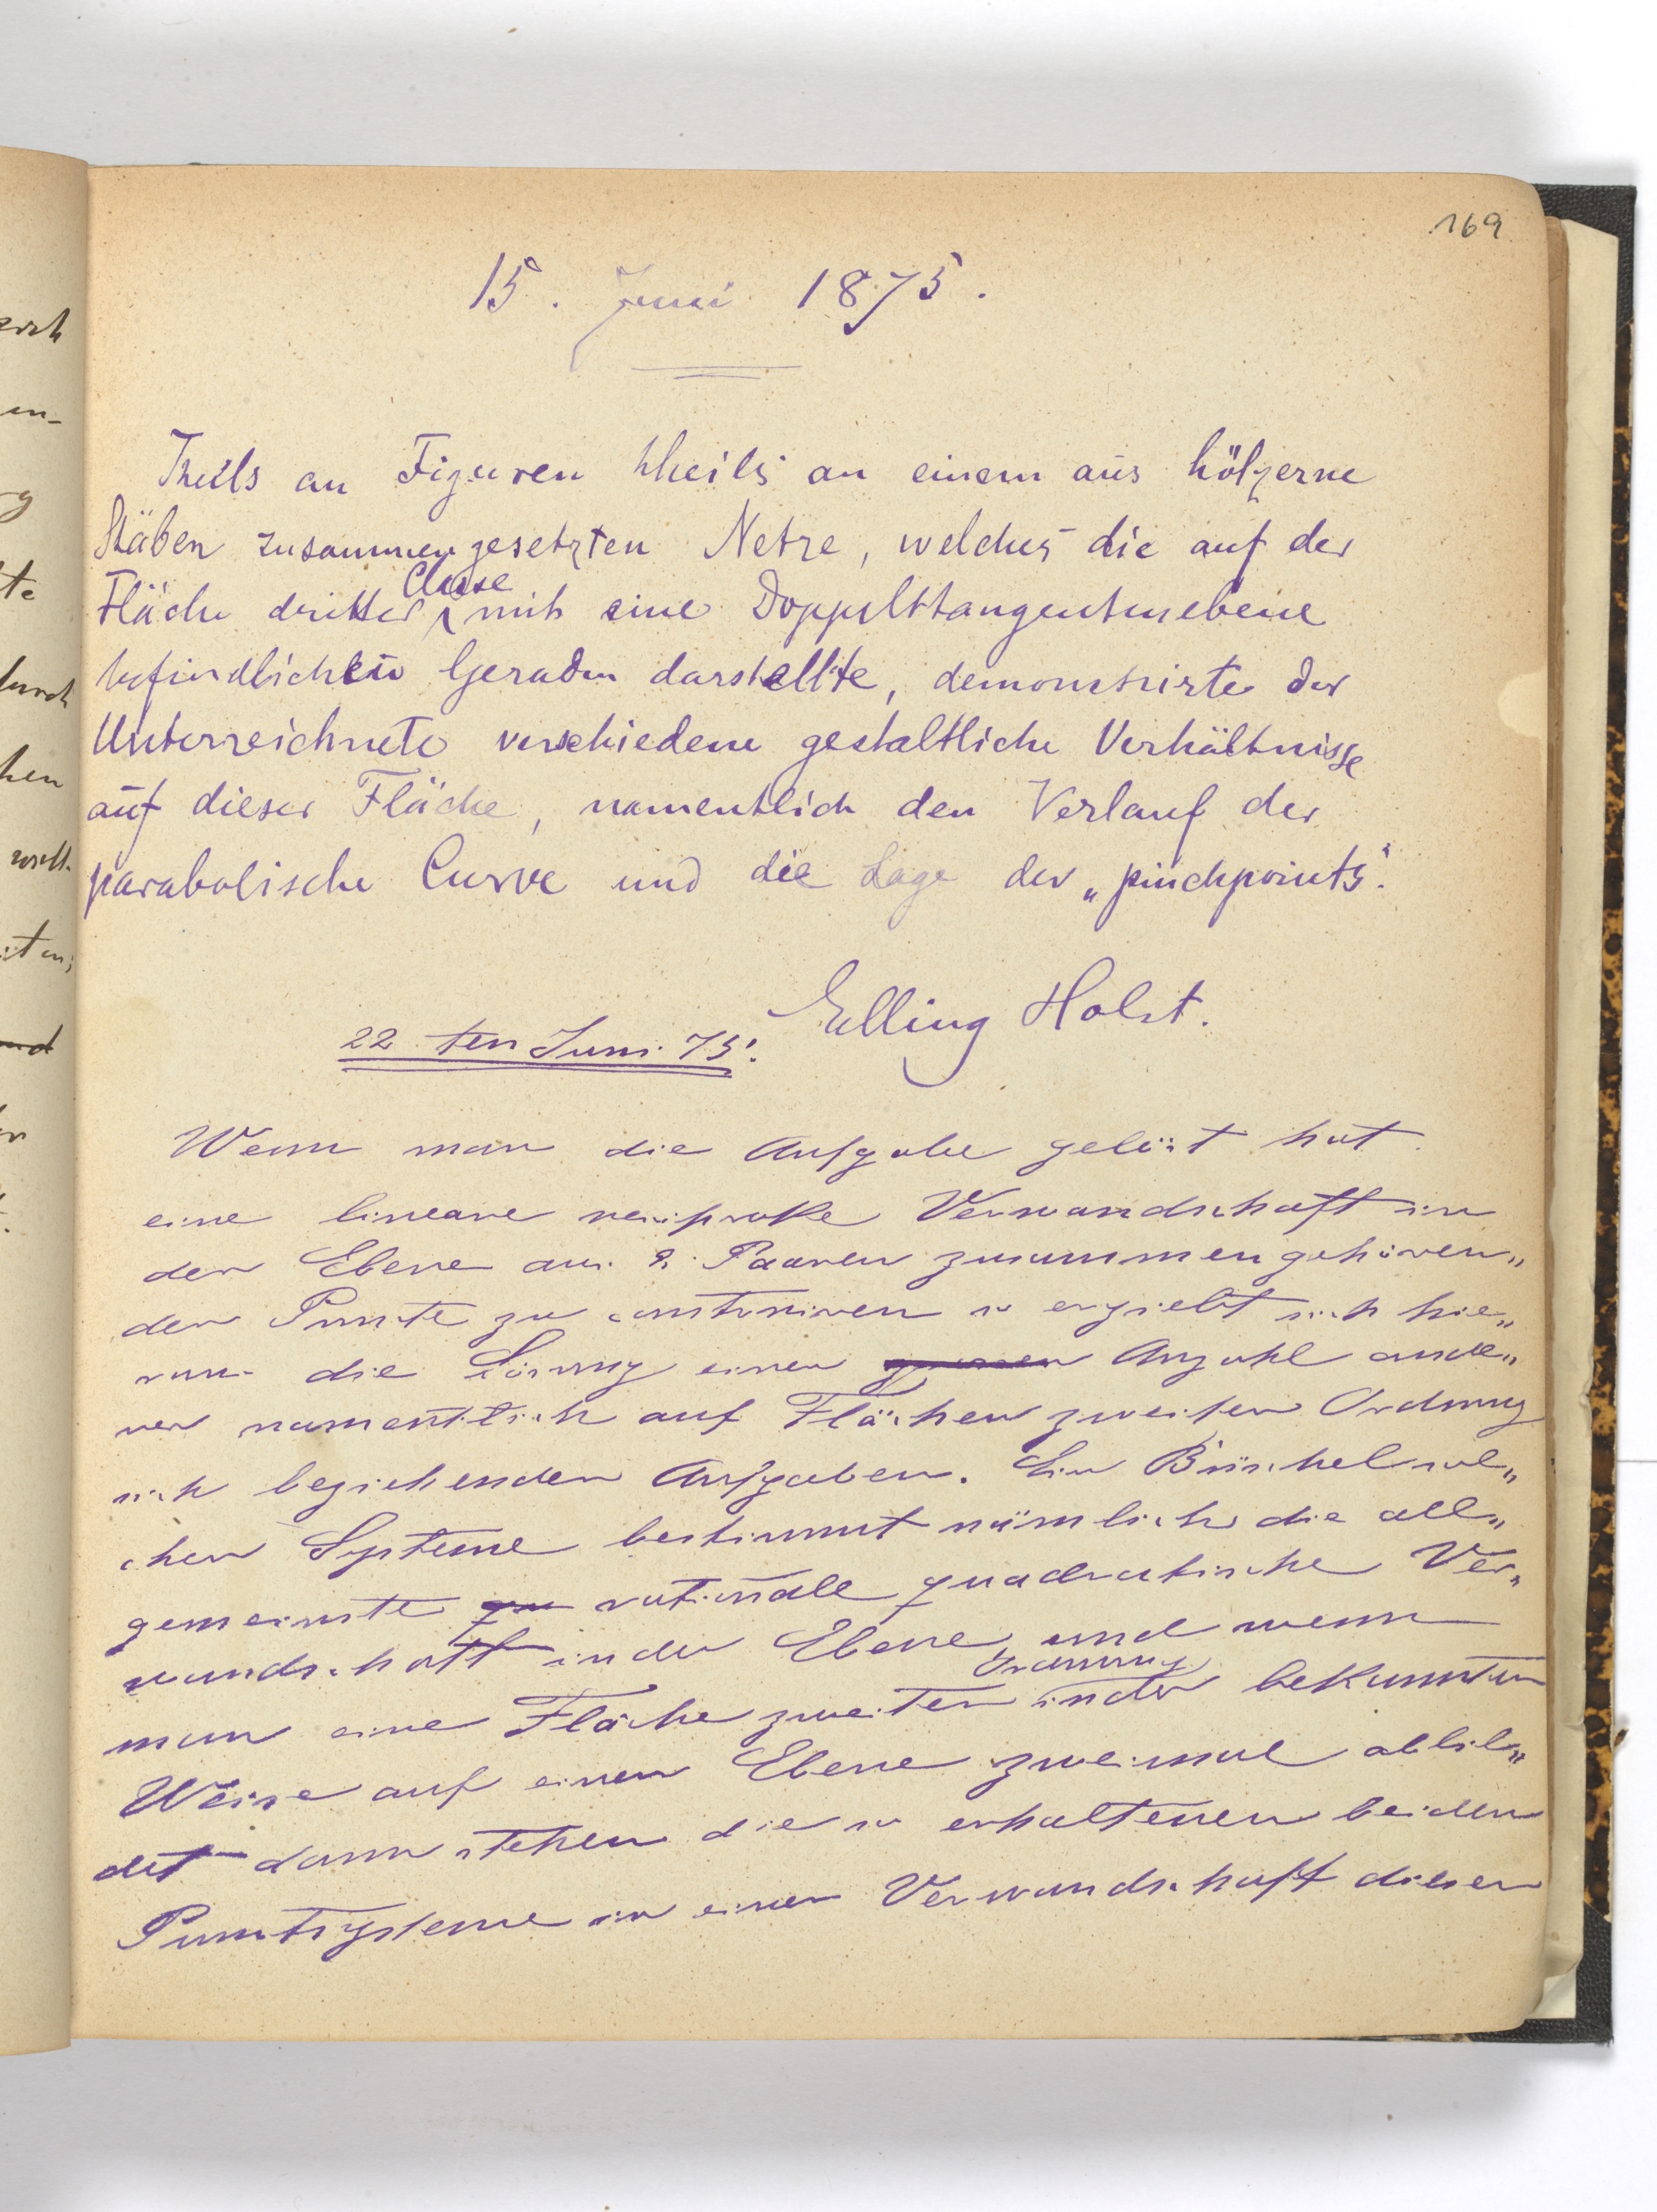 169
15. Juni 1875.
Theils an Figuren theils an einem aus hölzerne
Stäben zusammengesetzten Netze, welches die auf der
Fläche dritter Classe mit eine Doppeltangentenebene
befindlichen Geraden darstellte, demonstrirte der
Unterzeichnete verschiedene gestaltliche Verhältnisse
auf dieser Fläche, namentlich den Verlauf der
parabolische Curve und die Lage der „pinchpoints".
Elling Holst.
22 ten Juni 75.
Wenn man die Aufgabe gelöst hat
eine lineare reciproke Verwandschaft in
der Ebene aus 8 Paaren zusammengehören„
der Puncte zu construiren so ergiebt sich hie„
raus die Lösung einer grossen Anzahl ande„
rer namentlich auf Flächen zweiter Ordnung
sich beziehender Aufgaben. Ein Büschel sol„
cher Systeme bestimmt nämlich die all„
gemeinste qu rationale quadratische Ver„
wandschaft in der Ebene und wenn
man eine Fläche zweiter Ordnung in der bekannten
Weise auf einer Ebene zweimal abbil„
det dann stehen die so erhaltenen beiden
Punctsysteme in einer Verwandschaft dieser